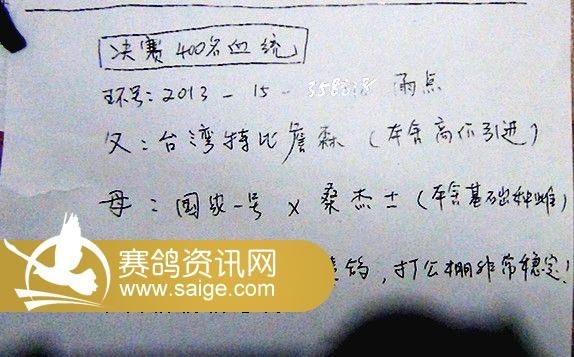 决赛400名血统
环号:2013-15-358838 雨点
父:台湾特比詹森(本舍高价引进)
母:国家一号x桑杰士(本舍基础种雌)
鸽,打公棚非常稳定!
赛鸽资讯网
www.saige.com